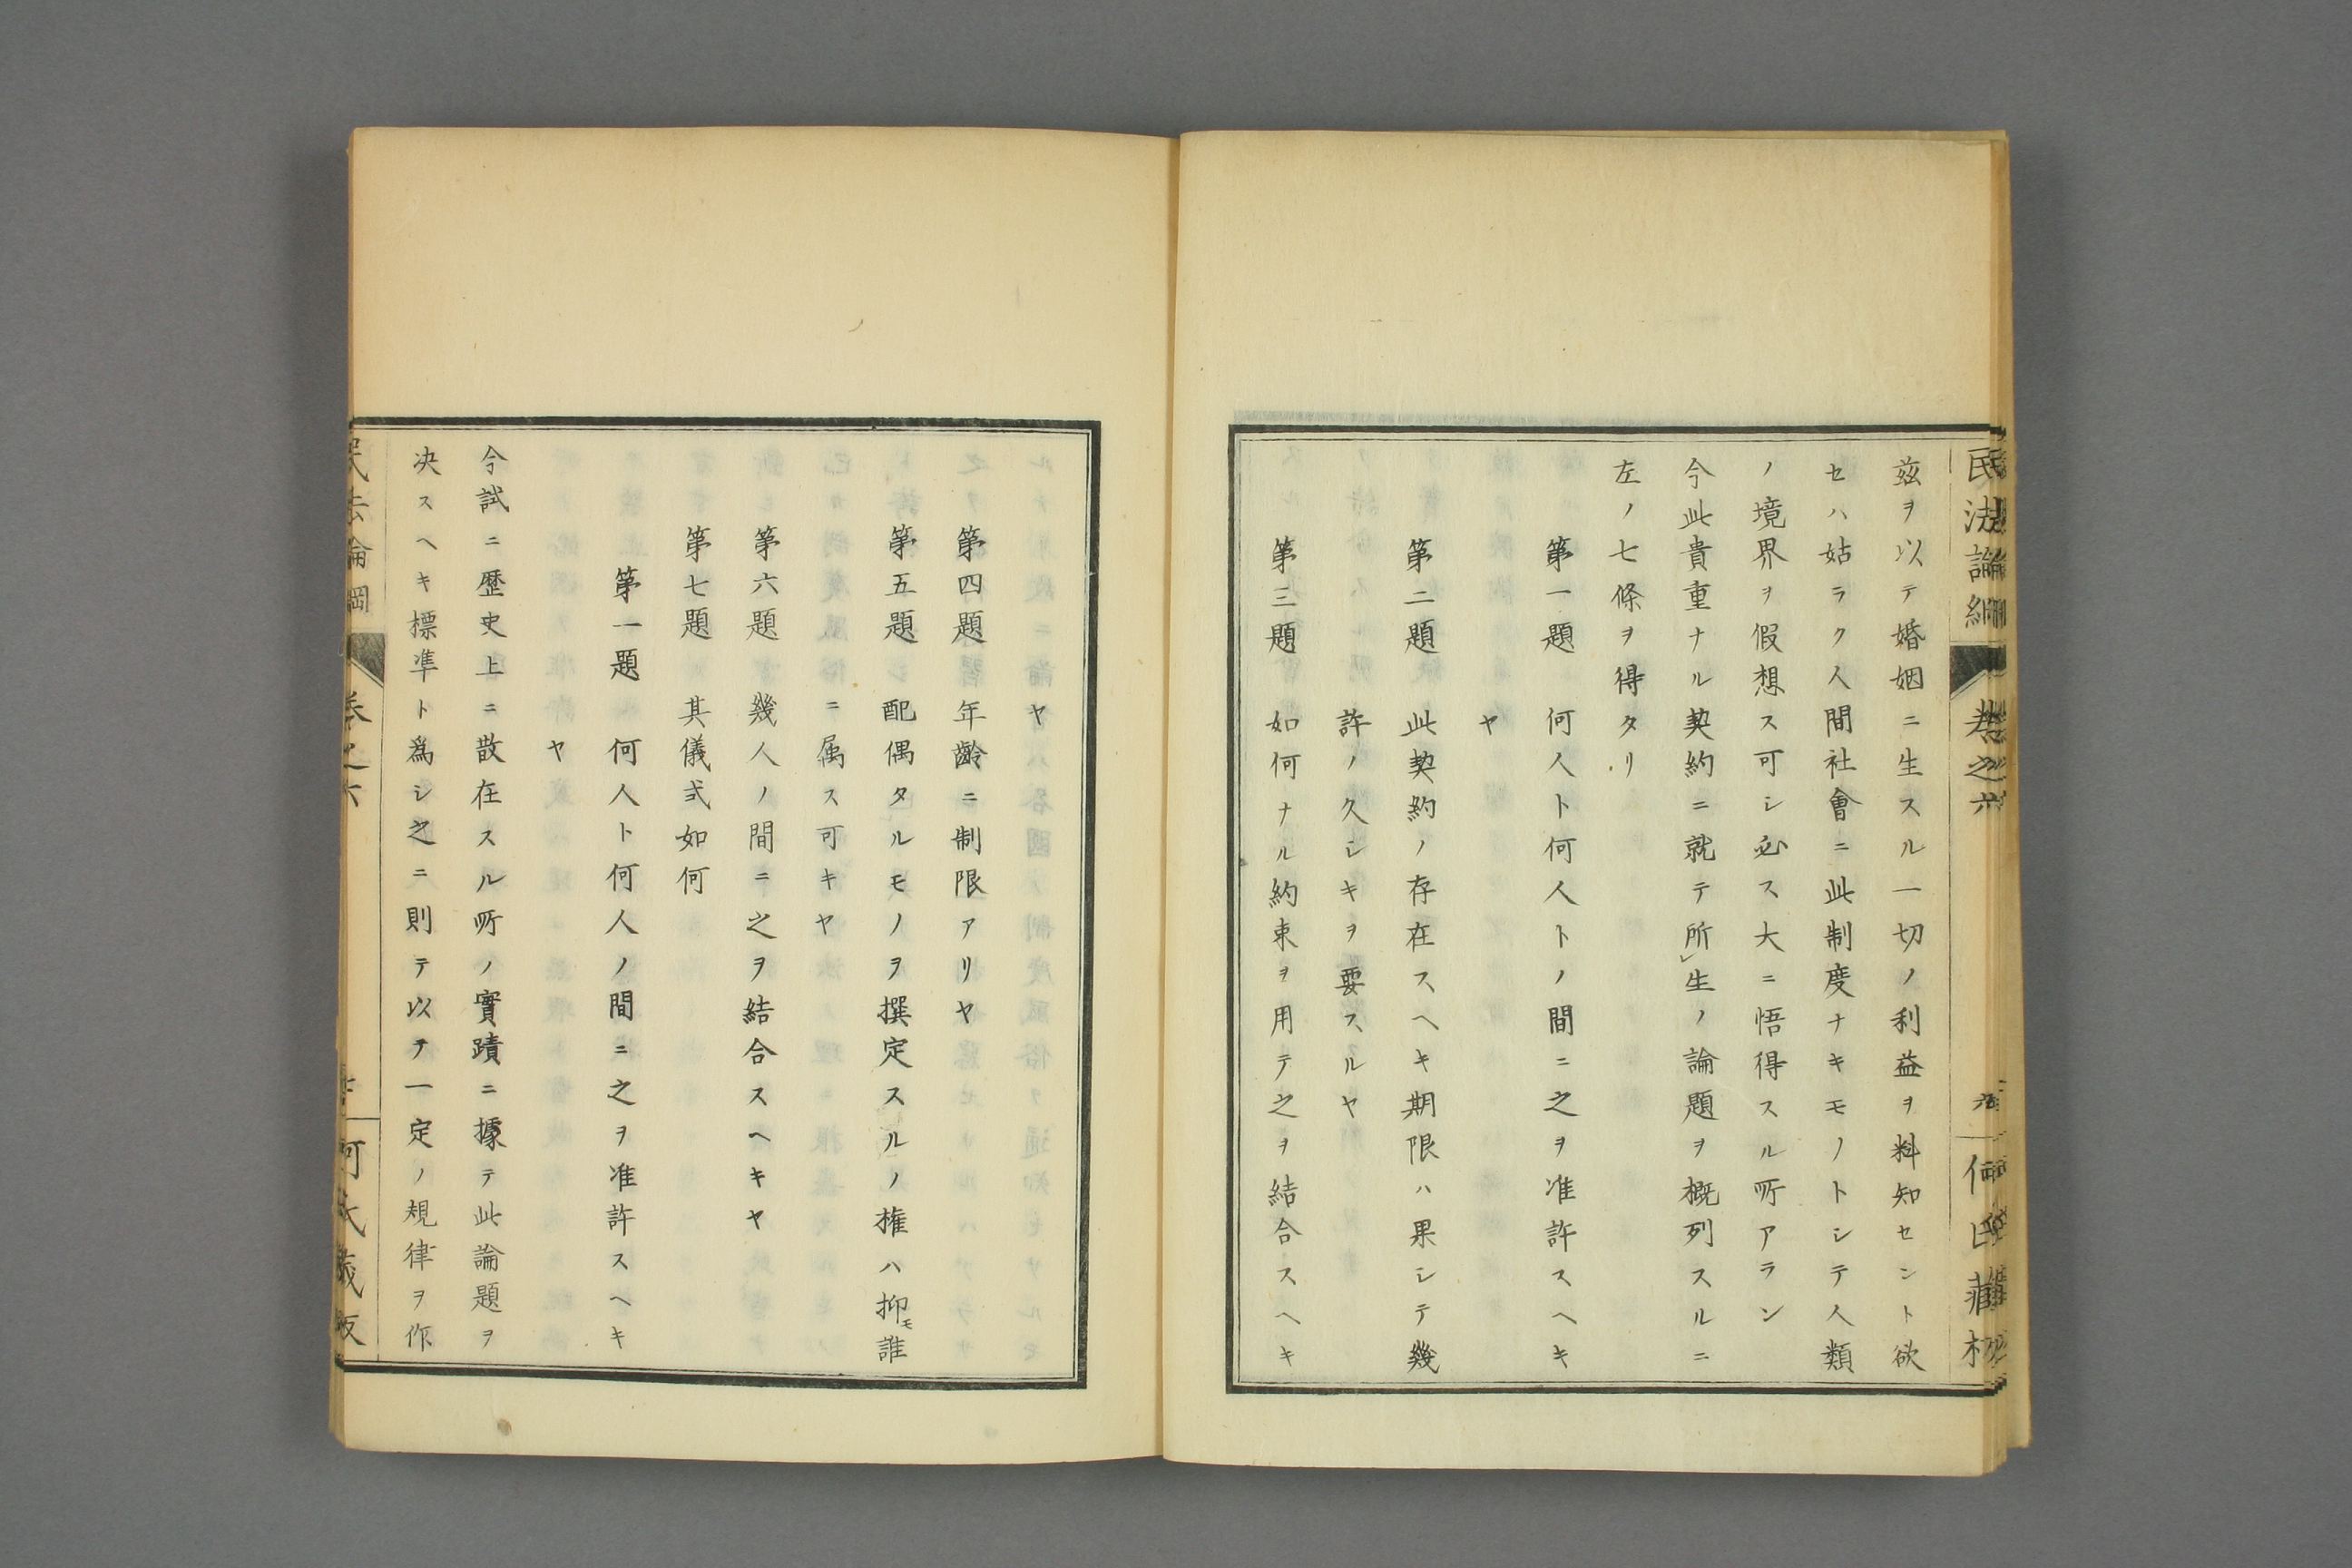 民法論綱
卷之六
何氏藏板
茲ヲ以テ婚姻ニ生スル一切ノ利益ヲ料知セント欲
セハ姑ラク人間社會ニ此制度ナキモノトシテ人類
ノ境界ヲ假想ス可シ必ス大ニ悟得スル所アラン
今此貴重ナル契約ニ就テ所生ノ論題ヲ概列スルニ
左ノ七條ヲ得タリ
第一題 何人ト何人トノ間ニ之ヲ准許スヘキ
ヤ
第二題 此契約ノ存在スヘキ期限ハ果シテ幾
許ノ久シキヲ要スルヤ
第三題 如何ナル約束ヲ用テ之ヲ結合スヘキ
ヤ
第四題 年齡ニ制限アリヤ
第五題 配偶タルモノヲ撰定スルノ権ハ抑モ誰
ニ属ス可キヤ
第六題 幾人ノ間ニ之ヲ結合スヘキヤ
第七題 其儀式如何
第一題 何人ト何人ノ間ニ之ヲ准許スヘキ
ヤ
今試ニ歴史上ニ散在スル所ノ實蹟ニ據テ此論題ヲ
决スヘキ標凖ト爲シ之ニ則テ以テ一定ノ規律ヲ作
民法論綱
卷之六
何氏藏板